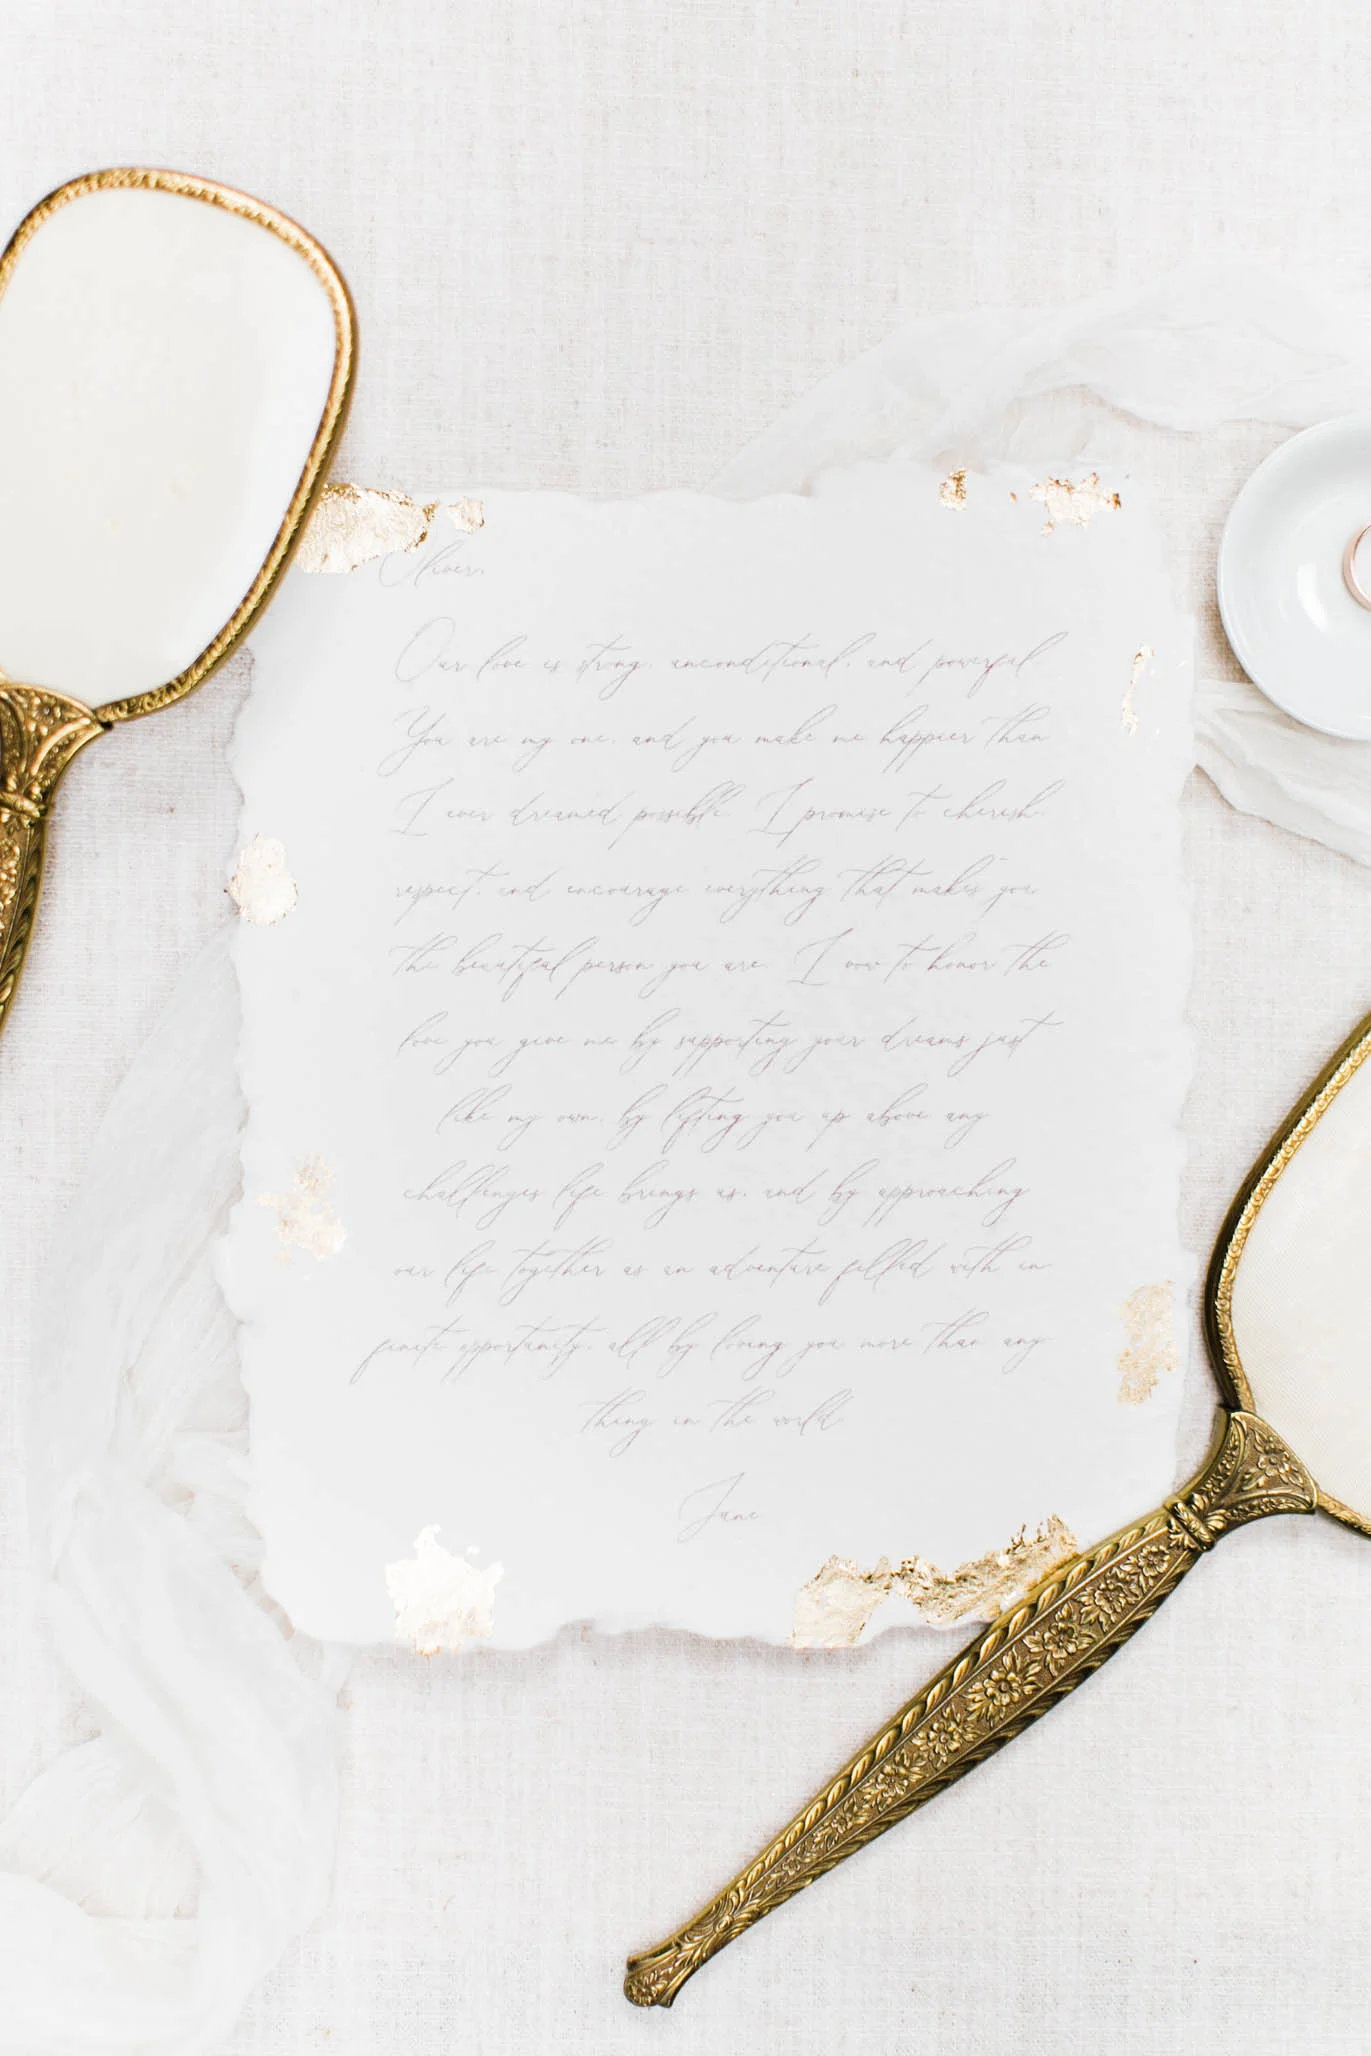 Oliver,
Our love is strong, unconditional, and powerful
You are my one, and you make me happier than
I ever dreamed possible. I promise to cherish,
respect, and encourage everything that makes you
the beautiful person you are. I vow to honor the
love you give me by supporting your dreams just
like my own, by lifting you up above any
challenges life brings us, and by approaching
our life together as an adventure filled with in-
finite opportunity, all by loving you more than any
thing in the world
June